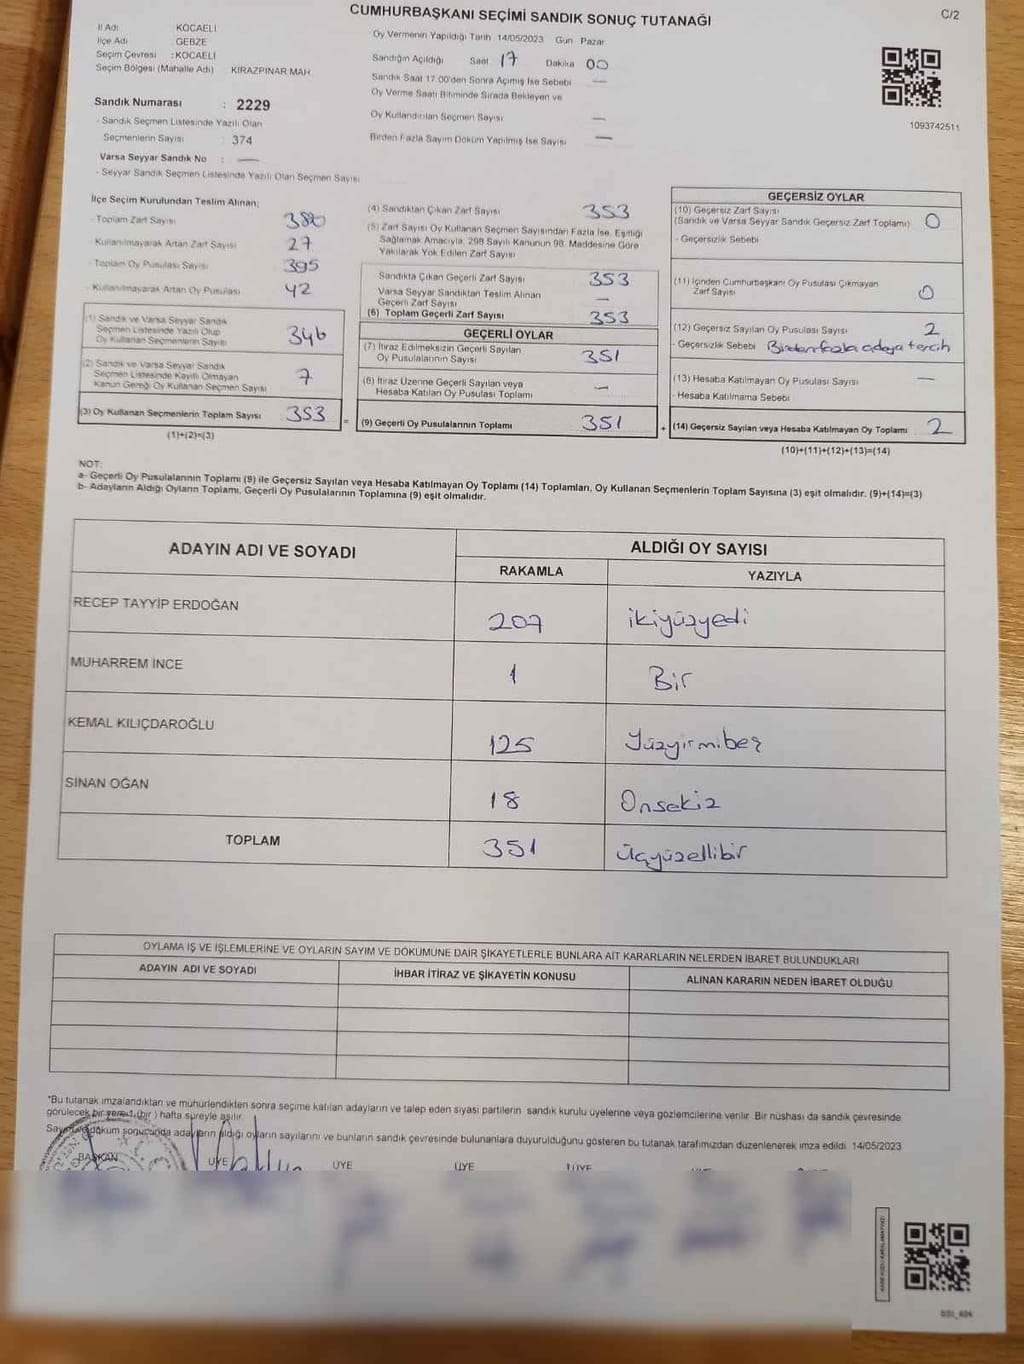 CUMHURBAŞKANI SEÇİMİ SANDIK SONUÇ TUTANAĞI
C/2
İl Adı KOCAELİ
İlçe Adı : GEBZE
Seçim Çevresi : KOCAELİ
Seçim Bölgesi (Mahalle Adı) : KİRAZPINAR MAH.
Sandık Numarası : 2229
- Sandık Seçmen Listesinde Yazılı Olan
Seçmenlerin Sayısı : 374
Varsa Seyyar Sandık No : —
- Seyyar Sandık Seçmen Listesinde Yazılı Olan Seçmen Sayısı
Oy Vermenin Yapıldığı Tarih 14/05/2023 Gün Pazar
Sandığın Açıldığı Saat 17 Dakika 00
Sandık Saat 17:00'den Sonra Açılmış İse Sebebi —
Oy Verme Saati Bitiminde Sırada Bekleyen ve
Oy Kullandırılan Seçmen Sayısı —
Birden Fazla Sayım Döküm Yapılmış İse Sayısı —
1093742511
İlçe Seçim Kurulundan Teslim Alınan;
- Toplam Zarf Sayısı 380
- Kullanılmayarak Artan Zarf Sayısı 27
- Toplam Oy Pusulası Sayısı 395
- Kullanılmayarak Artan Oy Pusulası 42
(1) Sandık ve Varsa Seyyar Sandık
Seçmen Listesinde Yazılı Olup
Oy Kullanan Seçmenlerin Sayısı 346
(2) Sandık ve Varsa Seyyar Sandık
Seçmen Listesinde Kayıtlı Olmayan
Kanun Gereği Oy Kullanan Seçmen Sayısı 7
(3) Oy Kullanan Seçmenlerin Toplam Sayısı 353 =
(1)+(2)=(3)
(4) Sandıktan Çıkan Zarf Sayısı 353
(5) Zarf Sayısı Oy Kullanan Seçmen Sayısından Fazla İse, Eşitliği
Sağlamak Amacıyla, 298 Sayılı Kanunun 98. Maddesine Göre
Yakılarak Yok Edilen Zarf Sayısı
Sandıkta Çıkan Geçerli Zarf Sayısı 353
Varsa Seyyar Sandıktan Teslim Alınan
Geçerli Zarf Sayısı —
(6) Toplam Geçerli Zarf Sayısı 353
GEÇERLİ OYLAR
(7) İtiraz Edilmeksizin Geçerli Sayılan
Oy Pusulalarının Sayısı 351
(8) İtiraz Üzerine Geçerli Sayılan veya
Hesaba Katılan Oy Pusulası Toplamı —
(9) Geçerli Oy Pusulalarının Toplamı 351 +
GEÇERSİZ OYLAR
(10) Geçersiz Zarf Sayısı
(Sandık ve Varsa Seyyar Sandık Geçersiz Zarf Toplamı) 0
- Geçersizlik Sebebi
(11) İçinden Cumhurbaşkanı Oy Pusulası Çıkmayan
Zarf Sayısı 0
(12) Geçersiz Sayılan Oy Pusulası Sayısı 2
- Geçersizlik Sebebi Birden fazla adaya tercih
(13) Hesaba Katılmayan Oy Pusulası Sayısı —
- Hesaba Katılmama Sebebi
(14) Geçersiz Sayılan veya Hesaba Katılmayan Oy Toplamı 2
(10)+(11)+(12)+(13)=(14)
NOT:
a- Geçerli Oy Pusulalarının Toplamı (9) ile Geçersiz Sayılan veya Hesaba Katılmayan Oy Toplamı (14) Toplamları, Oy Kullanan Seçmenlerin Toplam Sayısına (3) eşit olmalıdır. (9)+(14)=(3)
b- Adayların Aldığı Oyların Toplamı, Geçerli Oy Pusulalarının Toplamına (9) eşit olmalıdır.
ADAYIN ADI VE SOYADI ALDIĞI OY SAYISI
RAKAMLA YAZIYLA
RECEP TAYYİP ERDOĞAN 207 ikiyüzyedi
MUHARREM İNCE 1 Bir
KEMAL KILIÇDAROĞLU 125 Yüzyirmibeş
SİNAN OĞAN 18 Onsekiz
TOPLAM 351 Üçyüzellibir
OYLAMA İŞ VE İŞLEMLERİNE VE OYLARIN SAYIM VE DÖKÜMÜNE DAİR ŞİKAYETLERLE BUNLARA AİT KARARLARIN NELERDEN İBARET BULUNDUKLARI
ADAYIN ADI VE SOYADI İHBAR İTİRAZ VE ŞİKAYETİN KONUSU ALINAN KARARIN NEDEN İBARET OLDUĞU
*Bu tutanak imzalandıktan ve mühürlendikten sonra seçime katılan adayların ve talep eden siyasi partilerin sandık kurulu üyelerine veya gözlemcilerine verilir. Bir nüshası da sandık çevresinde
görülecek bir yere 1 (bir) hafta süreyle asılır.
Sayım ve döküm sonucunda adayların aldığı oyların sayılarını ve bunların sandık çevresinde bulunanlara duyurulduğunu gösteren bu tutanak tarafımızdan düzenlenerek imza edildi. 14/05/2023
BAŞKAN ÜYE ÜYE ÜYE ÜYE